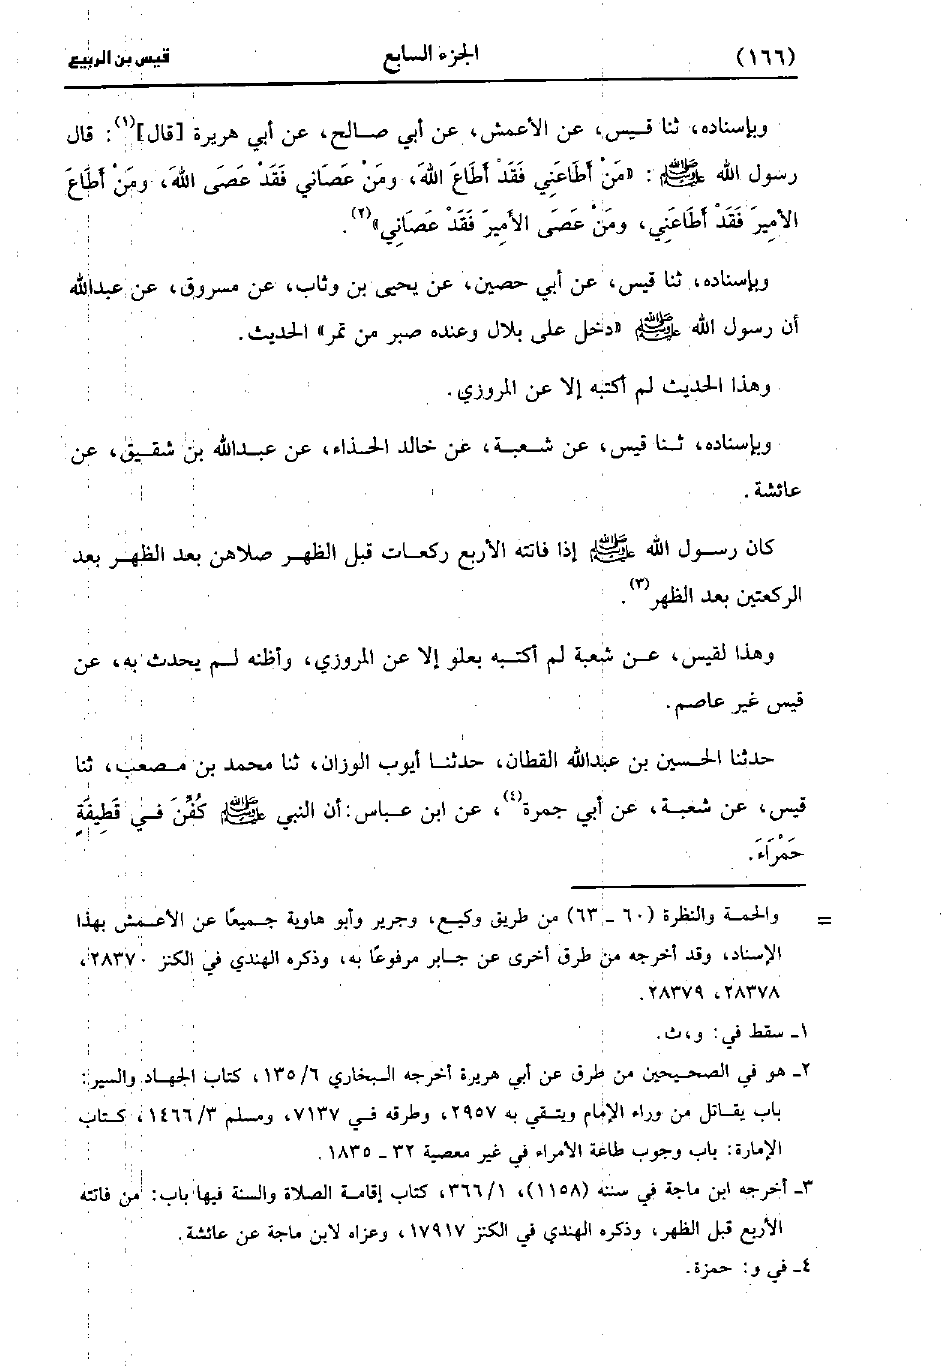 (١٦٦) الجزء السابع قيس بن الربيع
وبإسناده، ثنا قيس، عن الأعمش، عن أبي صالح، عن أبي هريرة [قال](١): قال
رسول الله ﷺ : «مَنْ أَطَاعَنِي فَقَدْ أَطَاعَ اللهَ، ومَنْ عَصَاني فَقَدْ عَصَى اللهَ، ومَنْ أطَاعَ
الأمِيرَ فَقَدْ أَطَاعَنِي، ومَنْ عَصَى الأمِيرَ فَقَدْ عَصَانِي»(٢).
وبإسناده، ثنا قيس، عن أبي حصين، عن يحيى بن وثاب، عن مسروق، عن عبدالله
أن رسول الله ﷺ «دخل على بلال وعنده صبر من تمر» الحديث.
وهذا الحديث لم أكتبه إلا عن المروزي.
وبإسناده، ثنا قيس، عن شعبة، عن خالد الحذاء، عن عبدالله بن شقيق، عن
عائشة.
كان رسول الله ﷺ إذا فاتته الأربع ركعات قبل الظهر صلاهن بعد الظهر بعد
الركعتين بعد الظهر(٣).
وهذا لقيس، عن شعبة لم أكتبه بعلو إلا عن المروزي، وأظنه لم يحدث به، عن
قيس غير عاصم.
حدثنا الحسين بن عبدالله القطان، حدثنا أيوب الوزان، ثنا محمد بن مصعب، ثنا
قيس، عن شعبة، عن أبي جمرة(٤)، عن ابن عباس: أن النبي ﷺ كُفِّنَ في قَطِيفَةٍ
حَمْرَاءَ.
= والحمة والنظرة (٦٠ ـ ٦٣) من طريق وكيع، وجرير وأبو هاوية جميعًا عن الأعمش بهذا
الإسناد، وقد أخرجه من طرق أخرى عن جابر مرفوعًا به، وذكره الهندي في الكنز ٢٨٣٧٠،
٢٨٣٧٨، ٢٨٣٧٩.
١ـ سقط في: و،ث.
٢ـ هو في الصحيحين من طرق عن أبي هريرة أخرجه البخاري ٦/ ١٣٥، كتاب الجهاد والسير:
باب يقاتل من وراء الإمام ويتقي به ٢٩٥٧، وطرفه في ٧١٣٧، ومسلم ٣/ ١٤٦٦، كتاب
الإمارة: باب وجوب طاعة الأمراء في غير معصية ٣٢ ـ ١٨٣٥.
٣ـ أخرجه ابن ماجة في سننه (١١٥٨)، ١/ ٣٦٦، كتاب إقامة الصلاة والسنة فيها باب: من فاتته
الأربع قبل الظهر، وذكره الهندي في الكنز ١٧٩١٧، وعزاه لابن ماجة عن عائشة.
٤ـ في و: حمزة.